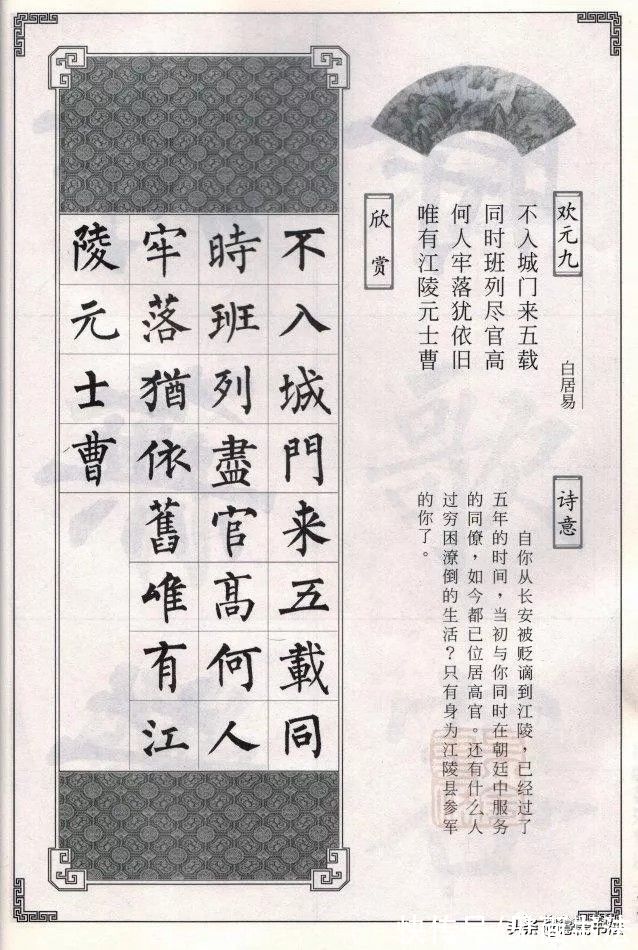 欢元九
白居易
不入城门来五载
同时班列尽官高
何人牢落犹依旧
唯有江陵元士曹
诗意
自你从长安被贬谪到江陵，已经过了
五年的时间，当初与你同时在朝廷中服务
的同僚，如今都已位居高官。还有什么人
过穷困潦倒的生活？只有身为江陵县参军
的你了。
欣赏
不入城門来五載同
時班列盡官高何人
牢落猶依舊唯有江
陵元士曹
头条